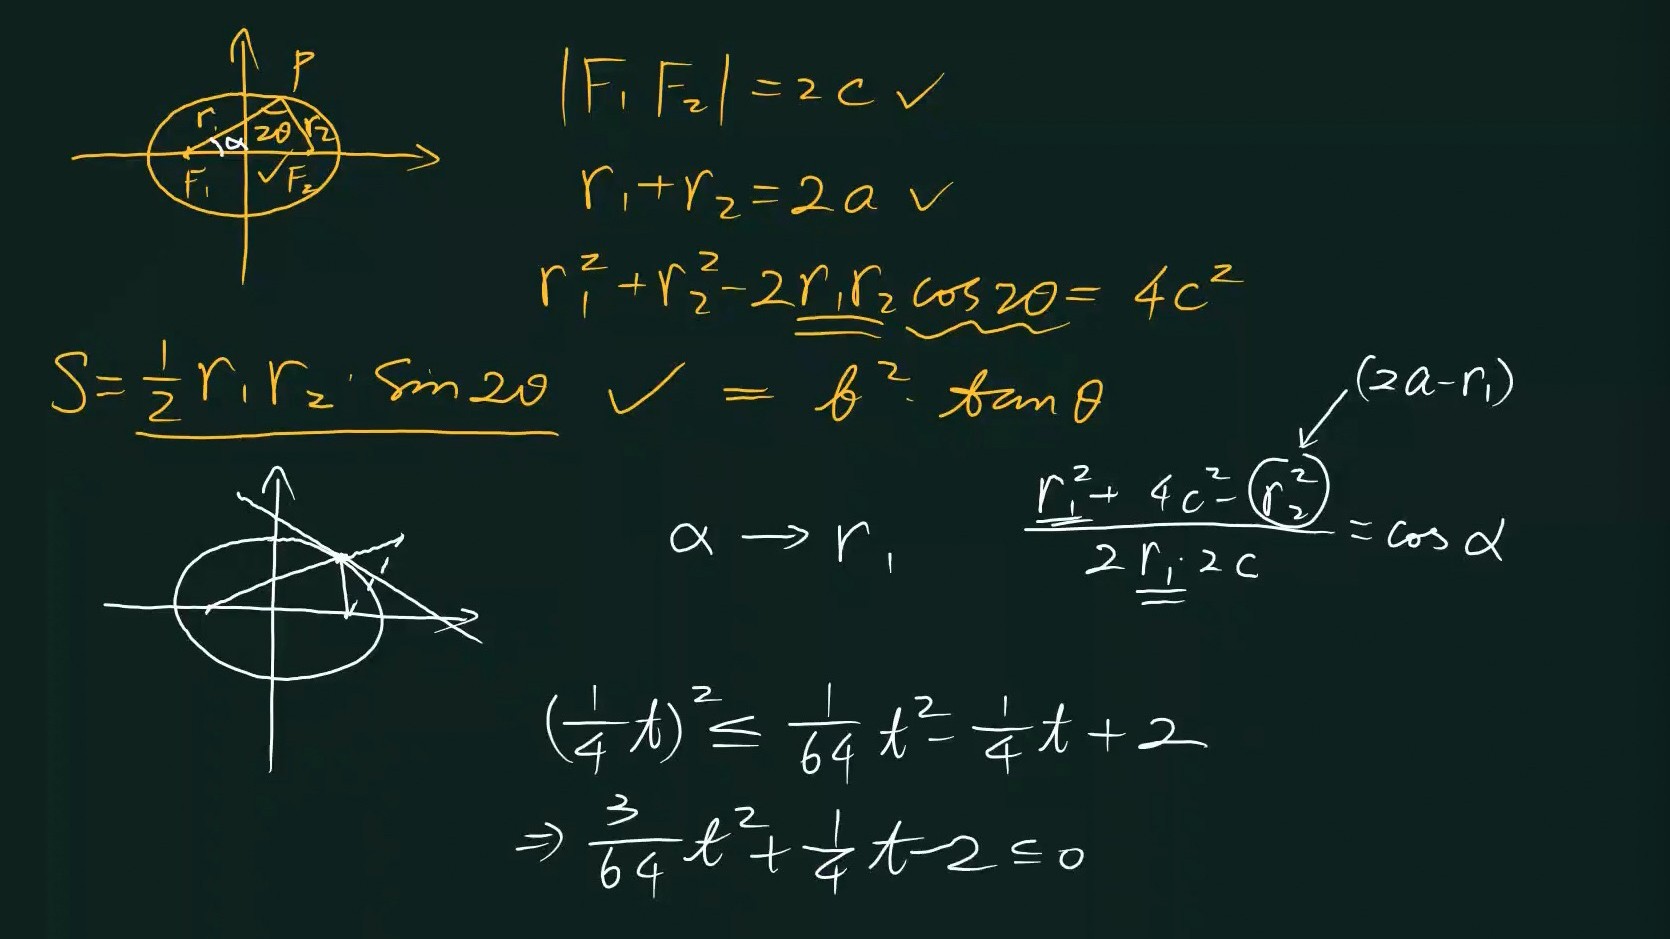 P
r₁ α 2θ r₂
F₁ ✓ F₂
|F₁ F₂| = 2c ✓
r₁ + r₂ = 2a ✓
r₁² + r₂² - 2r₁r₂ cos2θ = 4c²
S = 1/2 r₁ r₂ · Sin2θ ✓ = b² · tanθ
(2a - r₁)
α → r₁
(r₁² + 4c² - r₂²)/(2r₁·2c) = cosα
(1/4 t)² ≤ 1/64 t² - 1/4 t + 2
⇒ 3/64 t² + 1/4 t - 2 ≤ 0